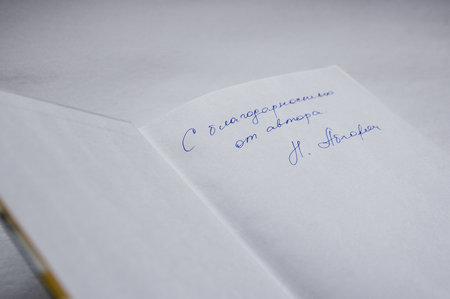 С благодарностью
от автора
Н.